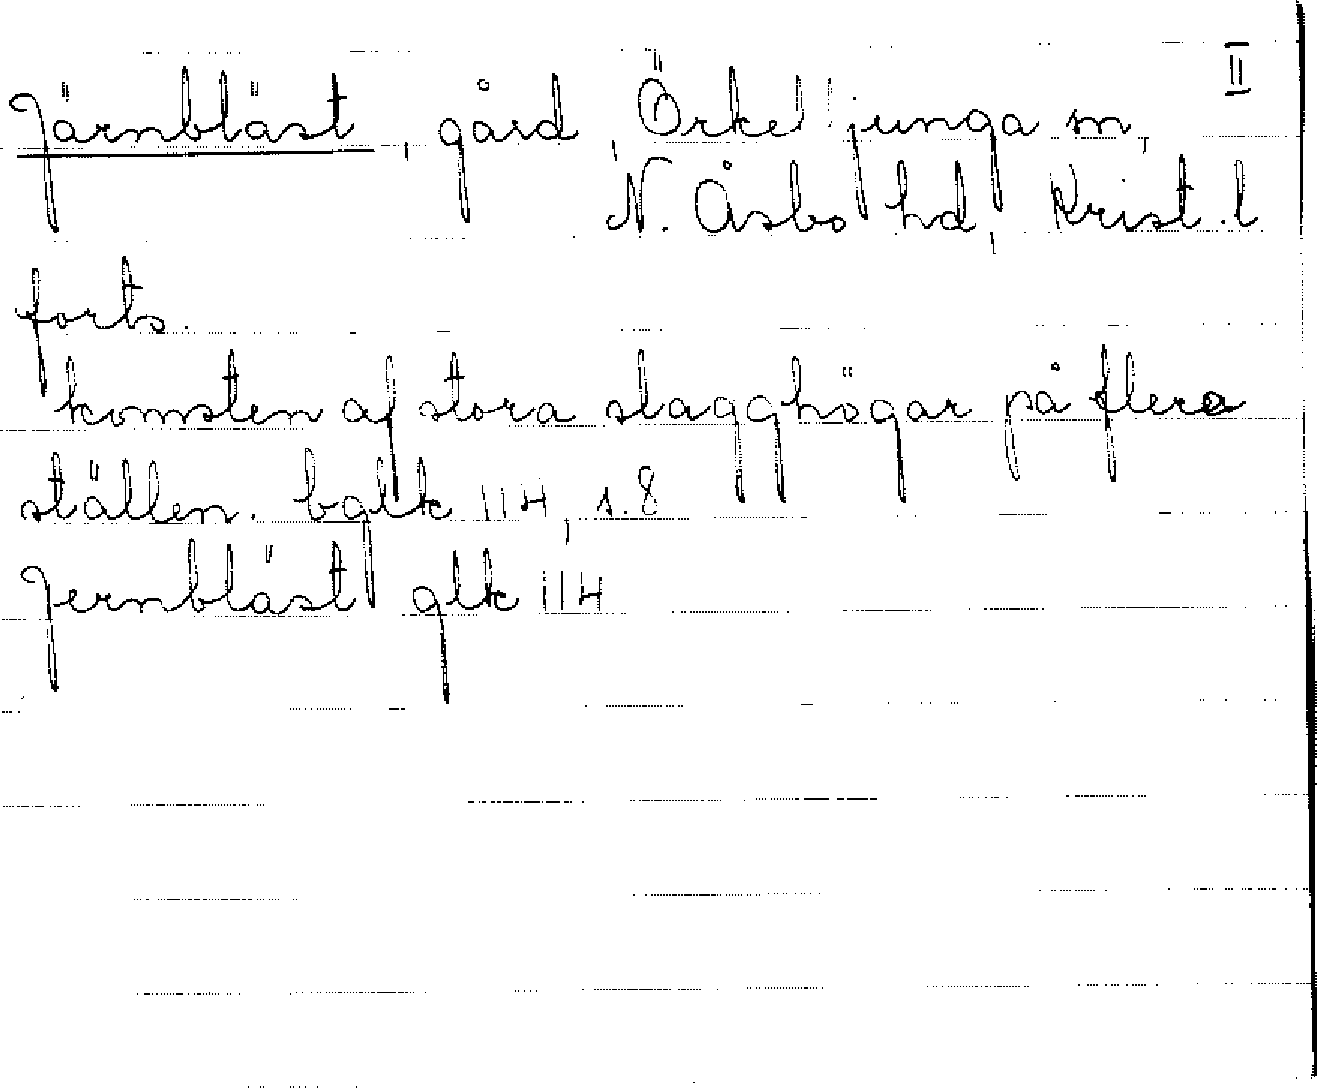 II
Järnbläst, gård, Örkelljunga sn,
N. Åsbo hd, Krist. l
forts.
komsten af stora slagghögar på flera
ställen. bglk 114, s. 8
Jernbläst glk 114